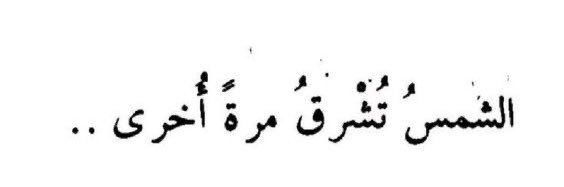 الشمسُ تُشْرقُ مرةً أُخرى ..